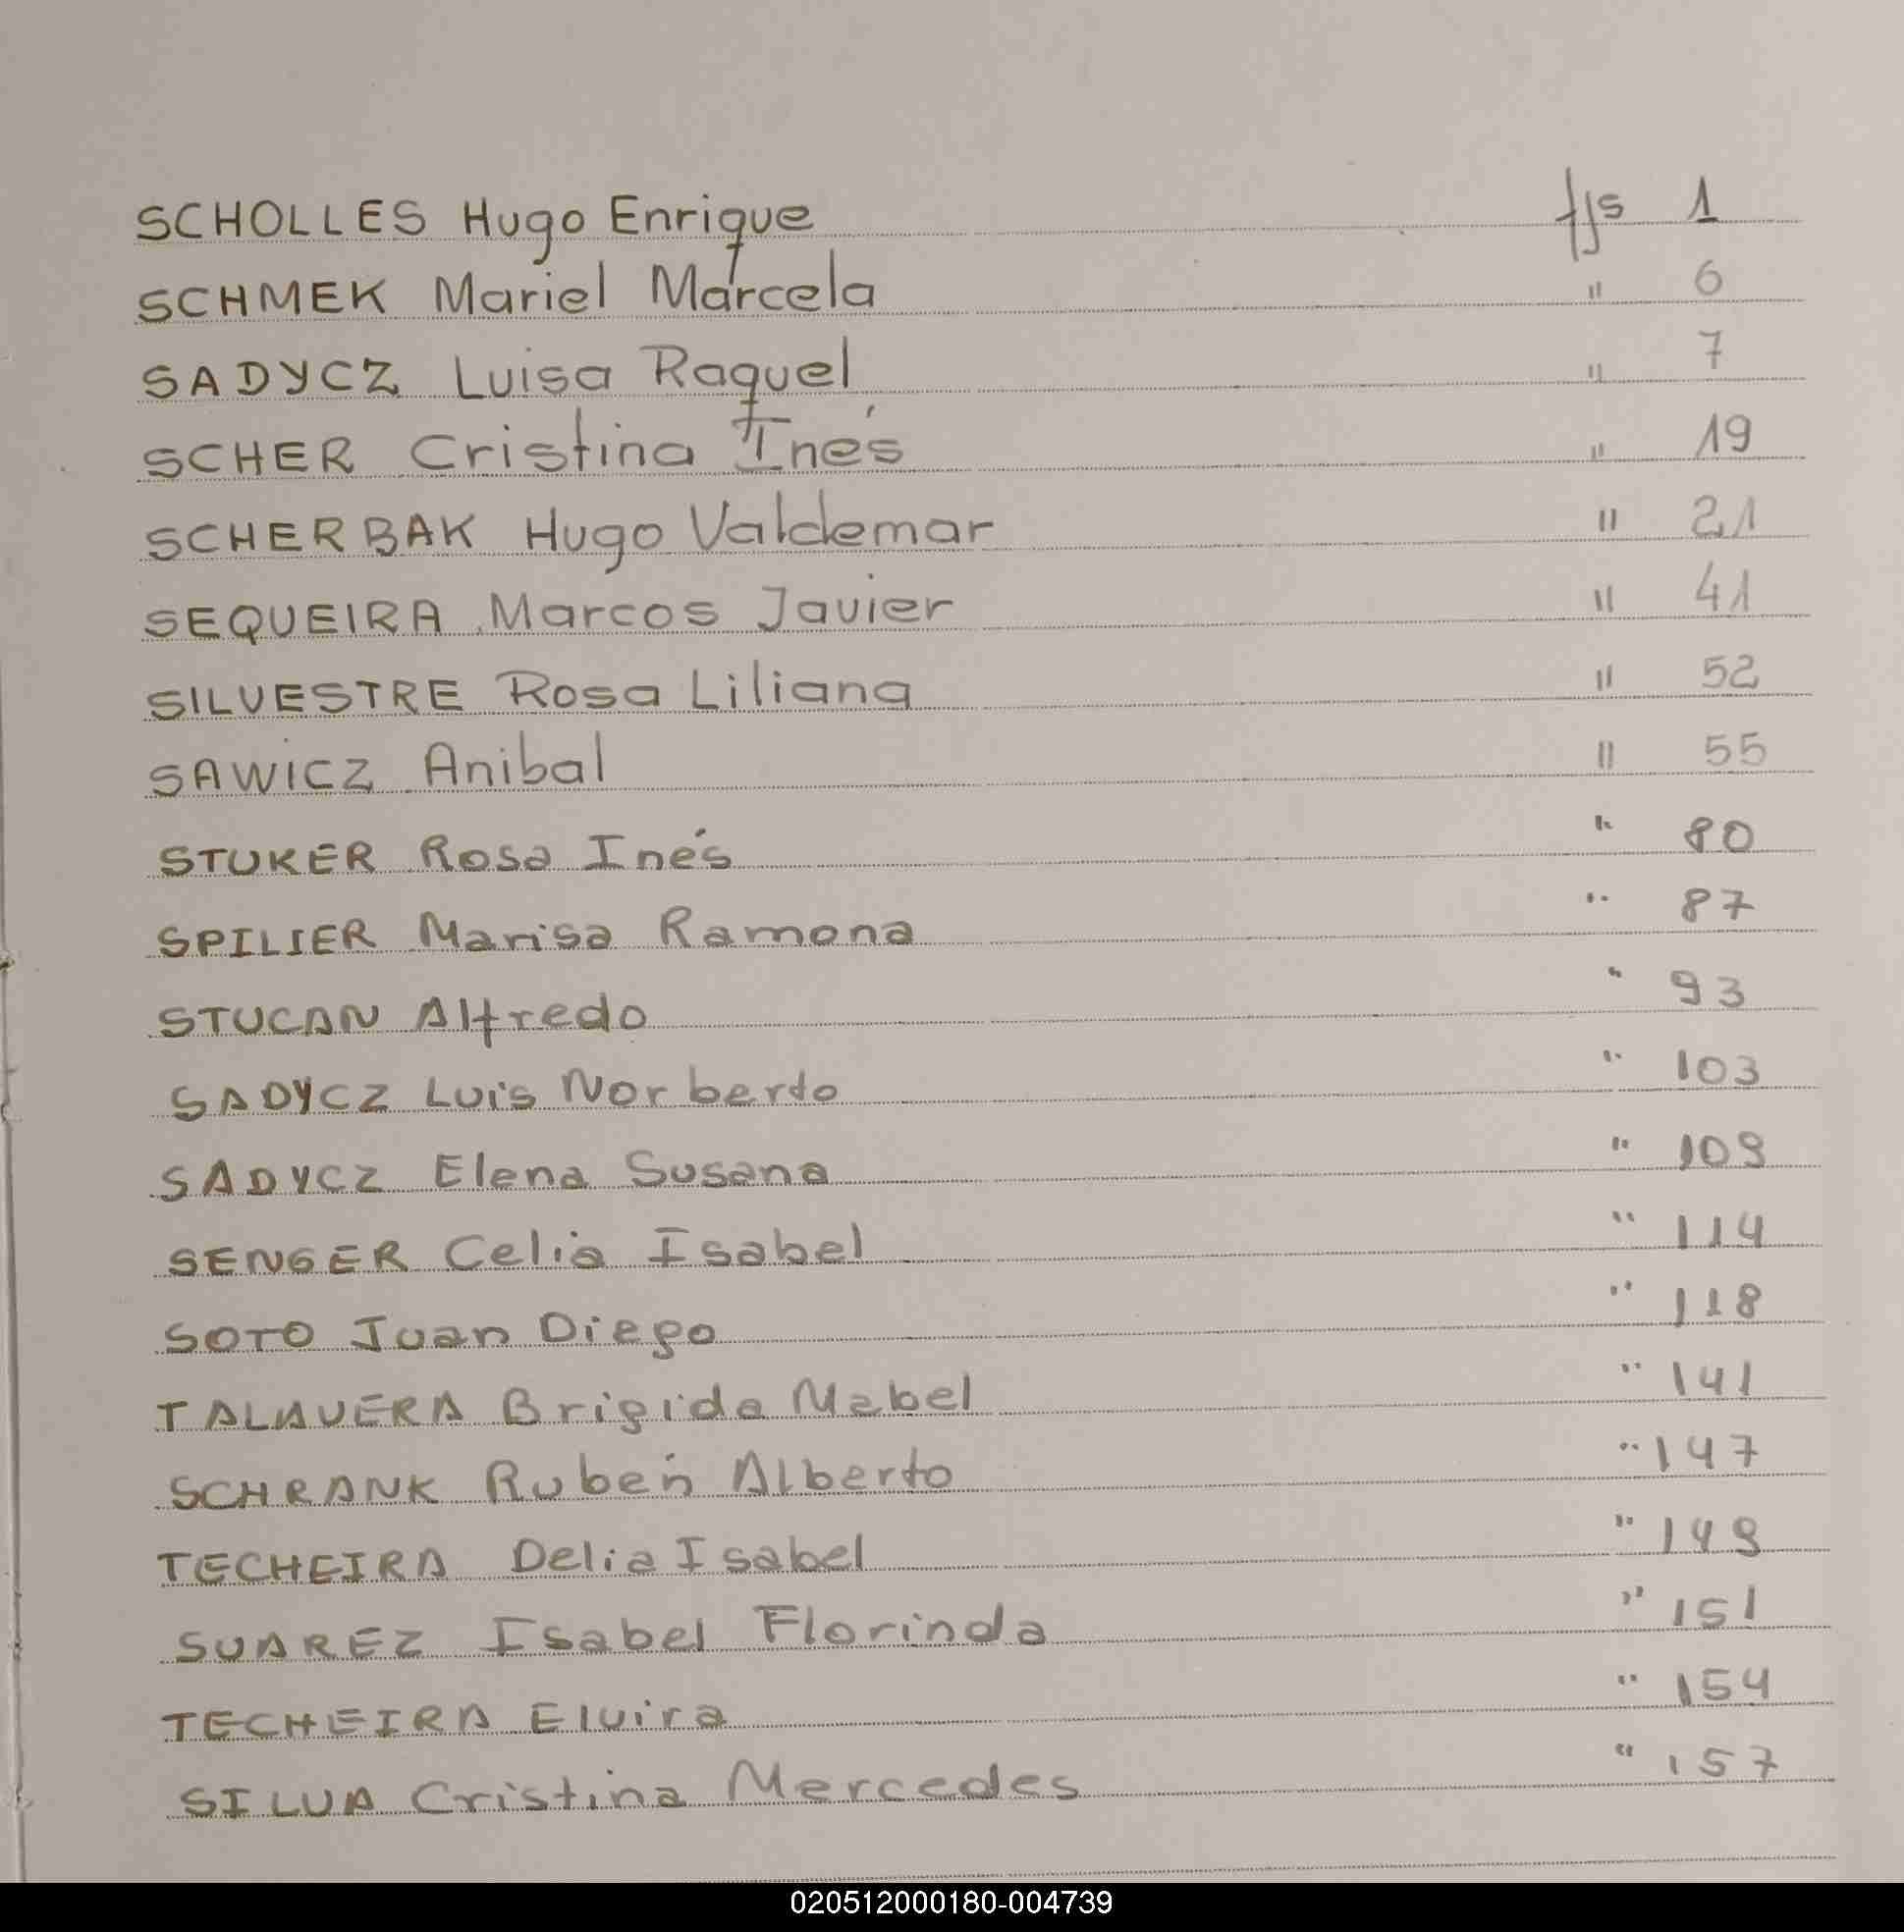 SCHOLLES Hugo Enrique fjs 1
SCHMEK Mariel Marcela " 6
SADYCZ Luisa Raquel " 7
SCHER Cristina Inés " 19
SCHERBAK Hugo Valdemar " 21
SEQUEIRA Marcos Javier " 41
SILVESTRE Rosa Liliana " 52
SAWICZ Anibal " 55
STUKER Rosa Inés " 80
SPILIER Marisa Ramona " 87
STUCAN Alfredo " 93
SADYCZ Luis Norberto " 103
SADYCZ Elena Susana " 109
SENGER Celia Isabel " 114
SOTO Juan Diego " 118
TALAVERA Brigida Mabel " 141
SCHRANK Rubén Alberto " 147
TECHEIRA Delia Isabel " 149
SUAREZ Isabel Florinda " 151
TECHEIRA Elvira " 154
SILVA Cristina Mercedes " 157
020512000180-004739